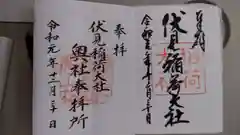 奉拝
伏見稲荷大社
令和元年十二月三十日
奉拝
伏見稲荷大社
奥社奉拝所
令和元年十二月三十日